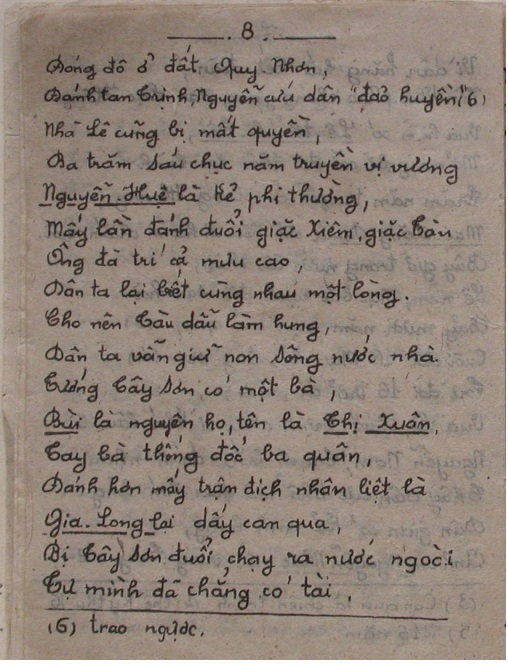 8
Đóng đô ở đất Quy Nhơn,
Đánh tan Trịnh Nguyễn cứu dân "đảo huyền" (6)
Nhà Lê cũng bị mất quyền,
Ba trăm sáu chục năm truyền vị vương
Nguyễn Huệ là kẻ phi thường,
Mấy lần đánh đuổi giặc Xiêm, giặc Tàu
Ông đà trí cả mưu cao,
Dân ta lại biết cùng nhau một lòng.
Cho nên Tàu dẫu làm hung,
Dân ta vẫn giữ non sông nước nhà.
Tướng Tây Sơn có một bà,
Bùi là nguyên họ, tên là Thị Xuân,
Tay bà thống đốc ba quân,
Đánh hơn mấy trận địch nhân liệt là
Gia-Long lại dấy can qua,
Bị Tây Sơn đuổi chạy ra nước ngoài
Tự mình đã chẳng có tài,
(6) trao ngược.